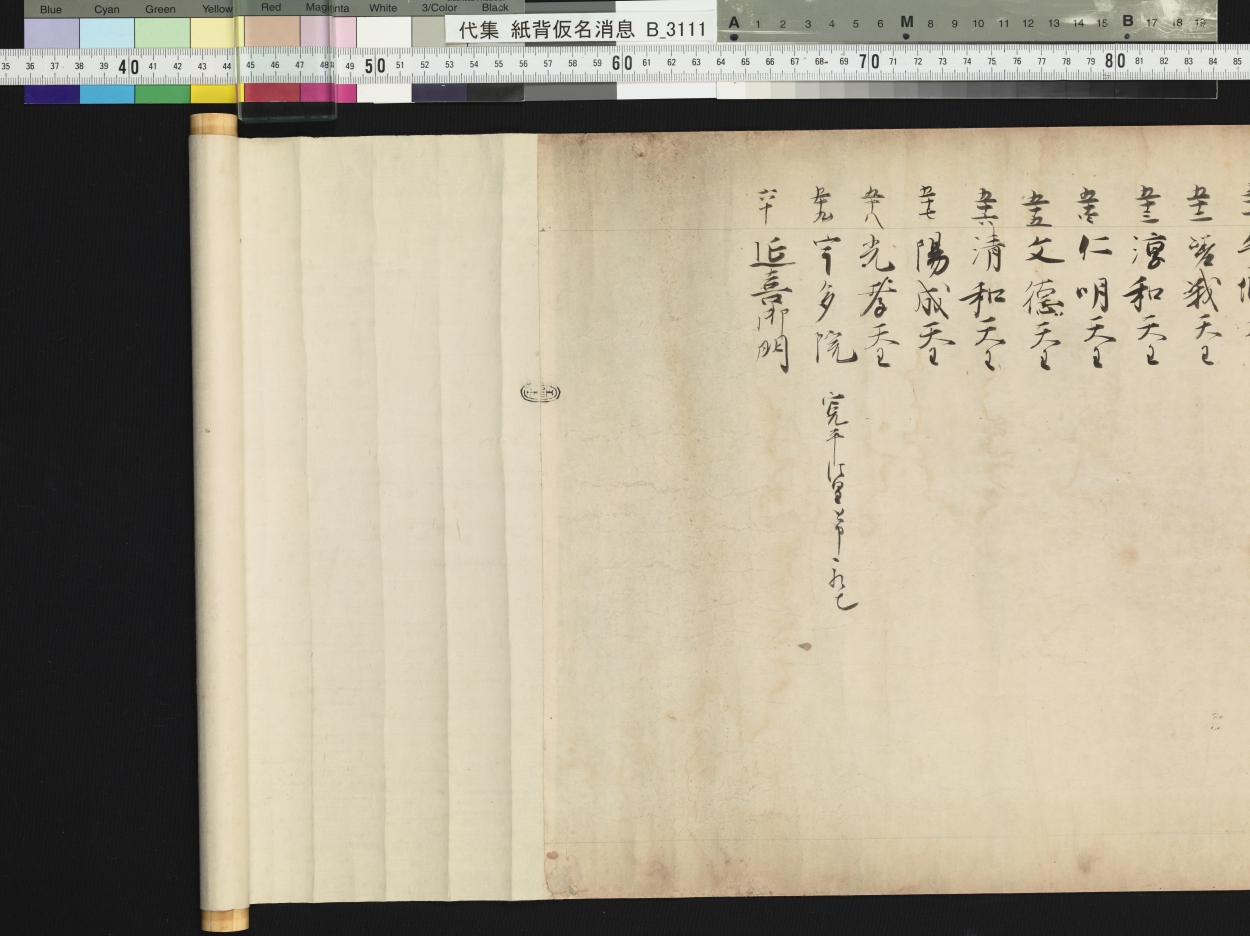 Blue Cyan Green Yellow Red Magenta White 3/Color Black
代集 紙背仮名消息 B_3111
A 1 2 3 4 5 6 M 8 9 10 11 12 13 14 15 B 17 18 19
35 36 37 38 39 40 41 42 43 44 45 46 47 48 49 50 51 52 53 54 55 56 57 58 59 60 61 62 63 64 65 66 67 68 69 70 71 72 73 74 75 76 77 78 79 80 81 82 83 84 85
五十二 嵯峨天王
五十三 淳和天王
五十四 仁明天王
五十五 文徳天王
五十六 清和天王
五十七 陽成天王
五十八 光孝天王
五十九 宇多院 寛平法皇
六十 延喜